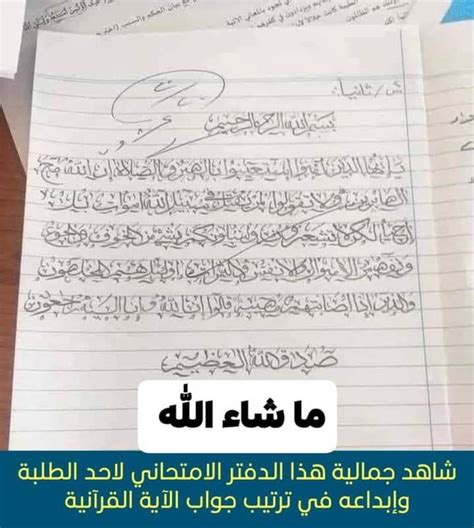 س/ ثانياً:
بسم الله الرحمن الرحيم
يا أيها الذين آمنوا استعينوا بالصبر والصلاة إن الله مع
الصابرين ولا تقولوا لمن يقتل في سبيل الله أموات بل
أحياء ولكن لا تشعرون ولنبلونكم بشيء من الخوف والجوع
ونقص من الأموال والأنفس والثمرات
الذين إذا أصابتهم مصيبة قالوا إنا لله وإنا إليه راجعون
صدق الله العظيم
ما شاء الله
شاهد جمالية هذا الدفتر الامتحاني لاحد الطلبة
وإبداعه في ترتيب جواب الآية القرآنية